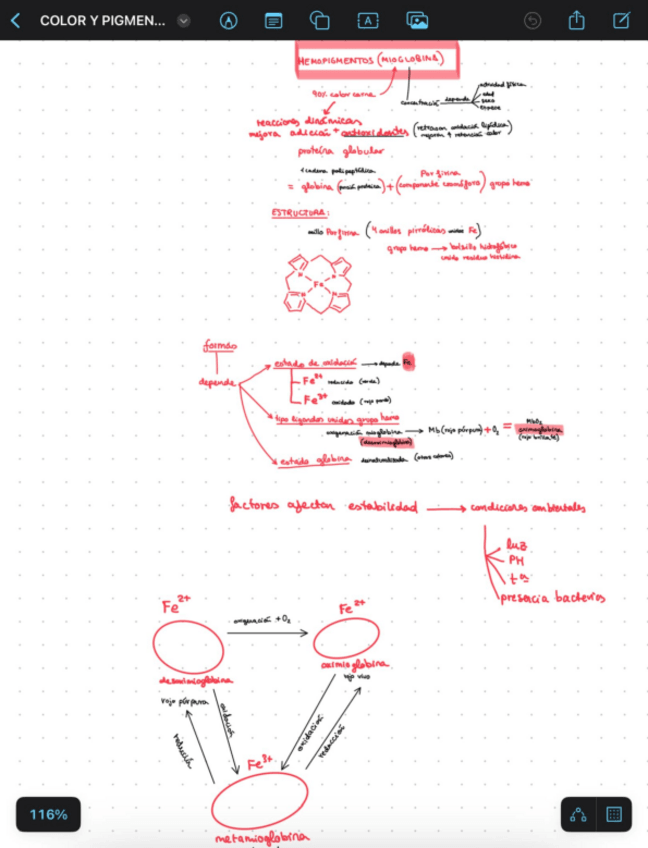 COLOR Y PIGMEN...
HEMOPIGMENTOS (MIOGLOBINA)
90% color carne
concentración depende
actividad física
edad
sexo
reacciones dinámicas
mejora adición + antioxidantes (retrasan oxidación lipídica
mejoran + retención color)
proteína globular
1 cadena polipeptídica
Porfirina
= globina (porción proteica) + (componente cromóforo) grupo hemo
ESTRUCTURA:
anillo Porfirina (4 anillos pirrólicos unidos Fe)
grupo hemo → bolsillo hidrofóbico
unido residuo histidina
N
N
Fe
N
N
formas
depende
estado de oxidación → depende Fe
Fe²⁺ reducido (verde)
Fe³⁺ oxidado (rojo pardo)
tipo ligandos unidos grupo hemo
oxigenación mioglobina → Mb (rojo púrpura) + O₂ = MbO₂
(desoximioglobina)
oximioglobina
(rojo brillante)
estado globina desnaturalizada (otros colores)
factores afectan estabilidad → condiciones ambientales
luz
PH
tas
presencia bacterias
Fe²⁺
Fe²⁺
oxigenación +O₂
desoximioglobina
rojo púrpura
oximioglobina
rojo vivo
oxidación
reducción
oxidación
reducción
Fe³⁺
metamioglobina
116%